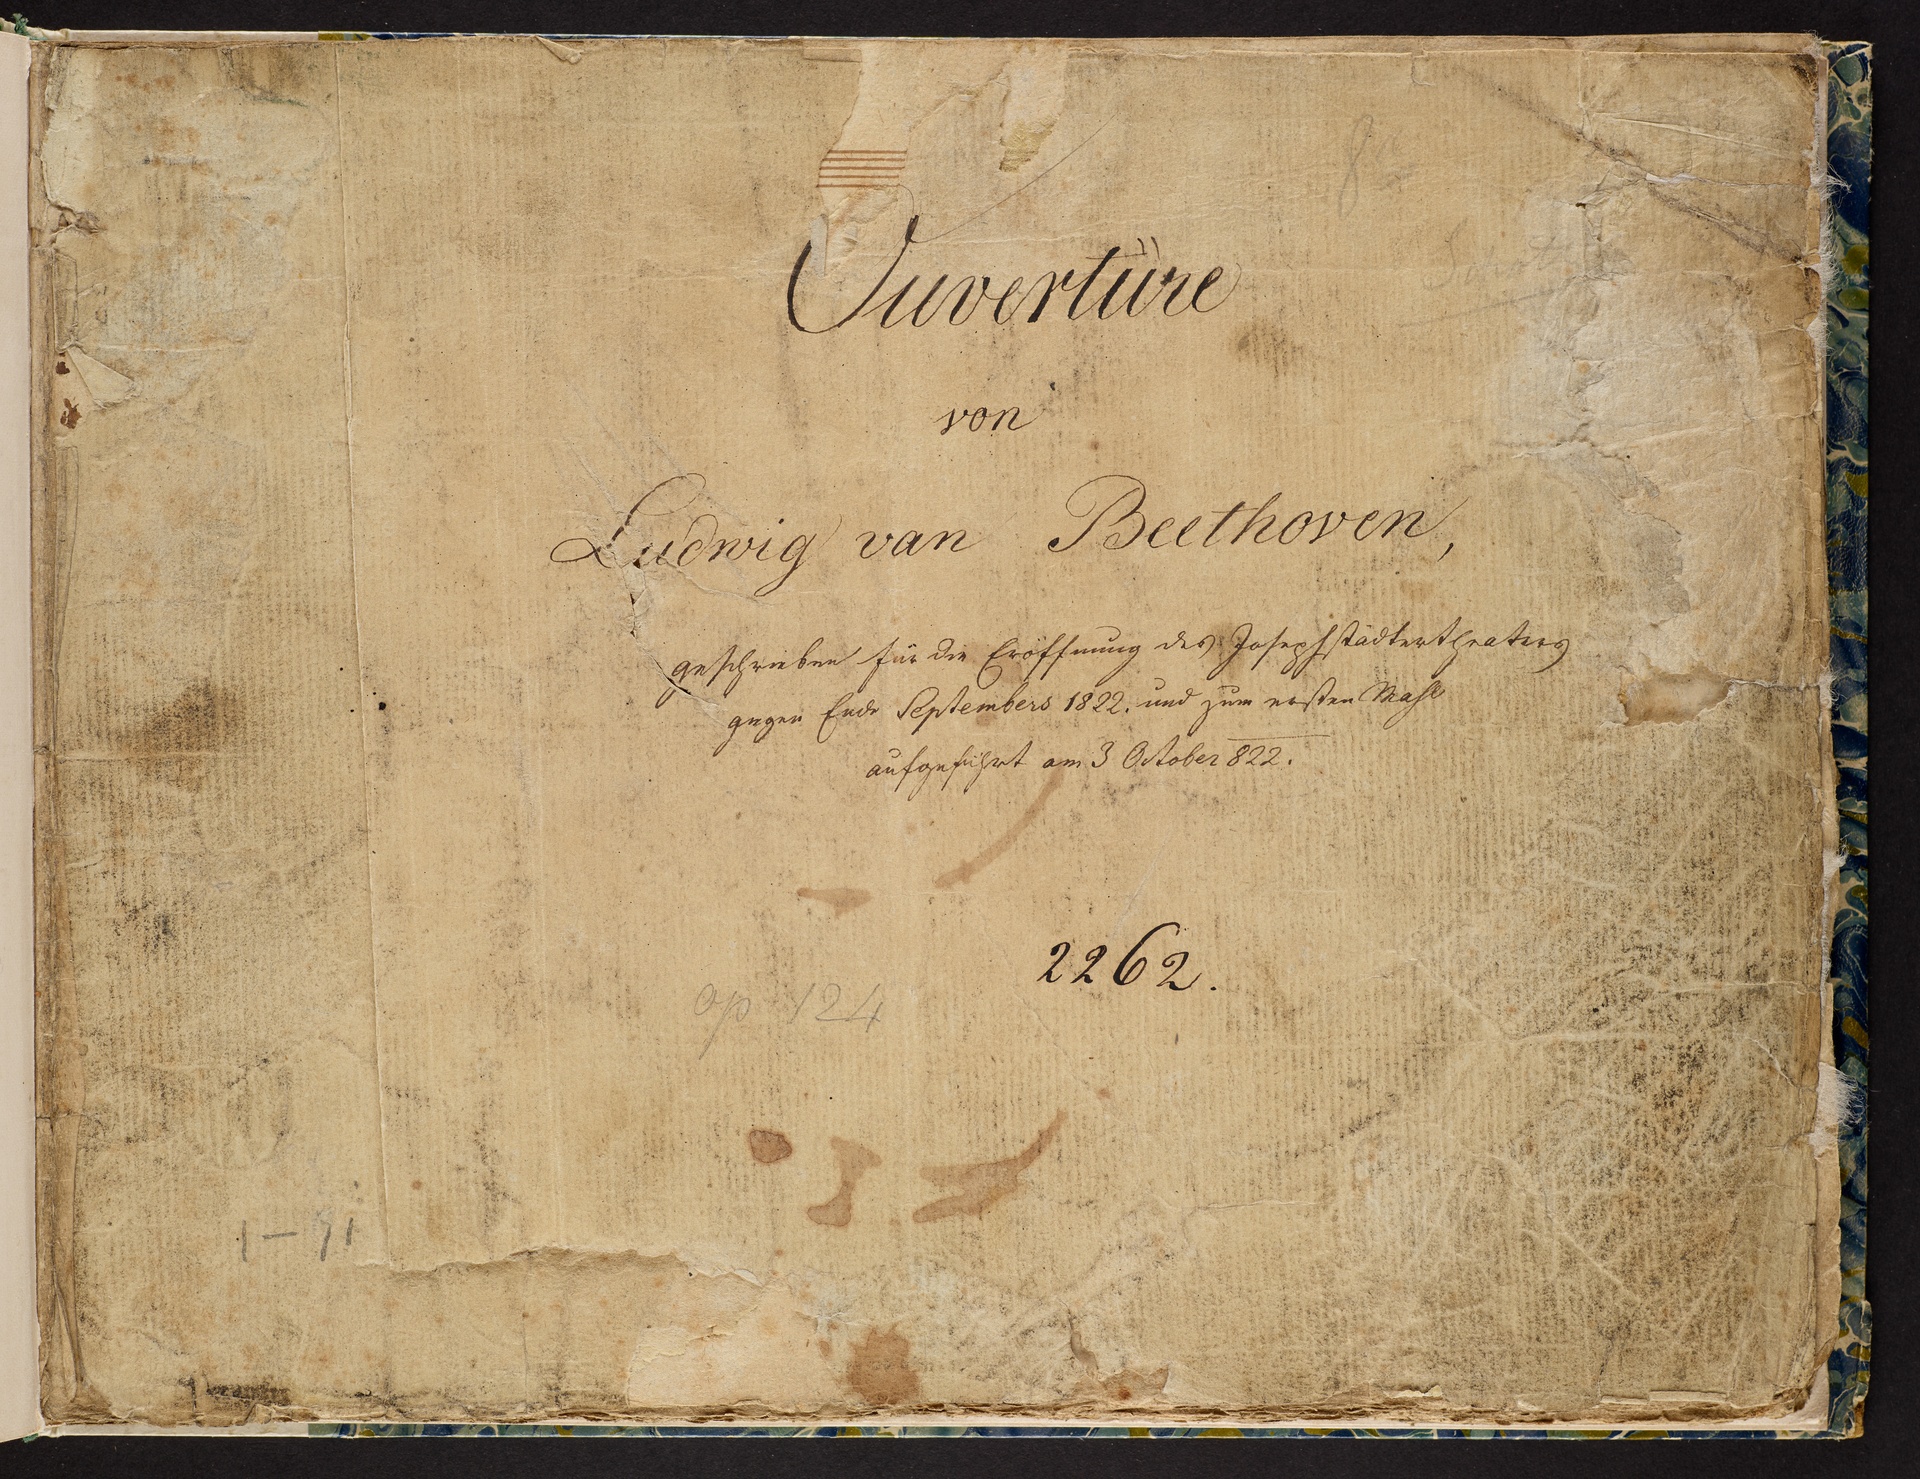 Ouvertüre
von
Ludwig van Beethoven,
geschrieben für die Eröffnung des Josephstädtertheaters
gegen Ende Septembers 1822. und zum ersten Mahl
aufgeführt am 3 October 822.
2262.
op 124
1 — 91